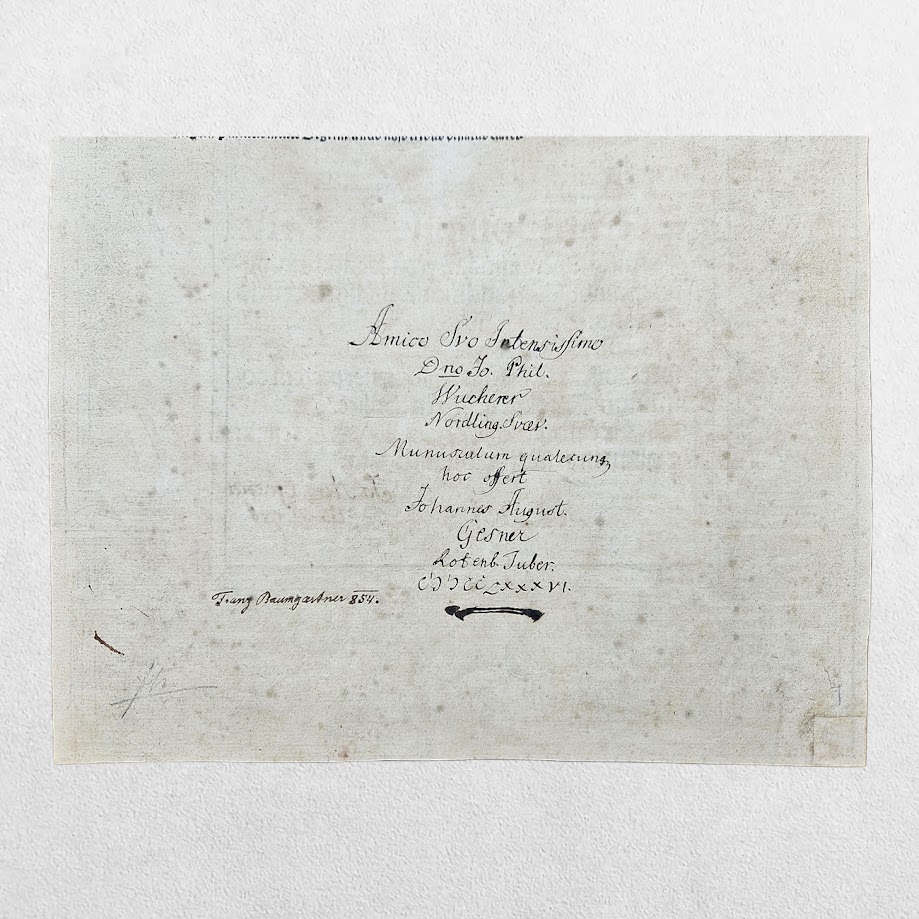 Amico Svo Intensissimo
Dno Jo. Phil.
Wucherer
Nordling. Svev.
Munusculum qualecunq
hoc offert
Johannes August.
Gesner
Rotenb. Tuber.
CIƆIƆCCLXXXVI.
Franz Baumgartner 854.